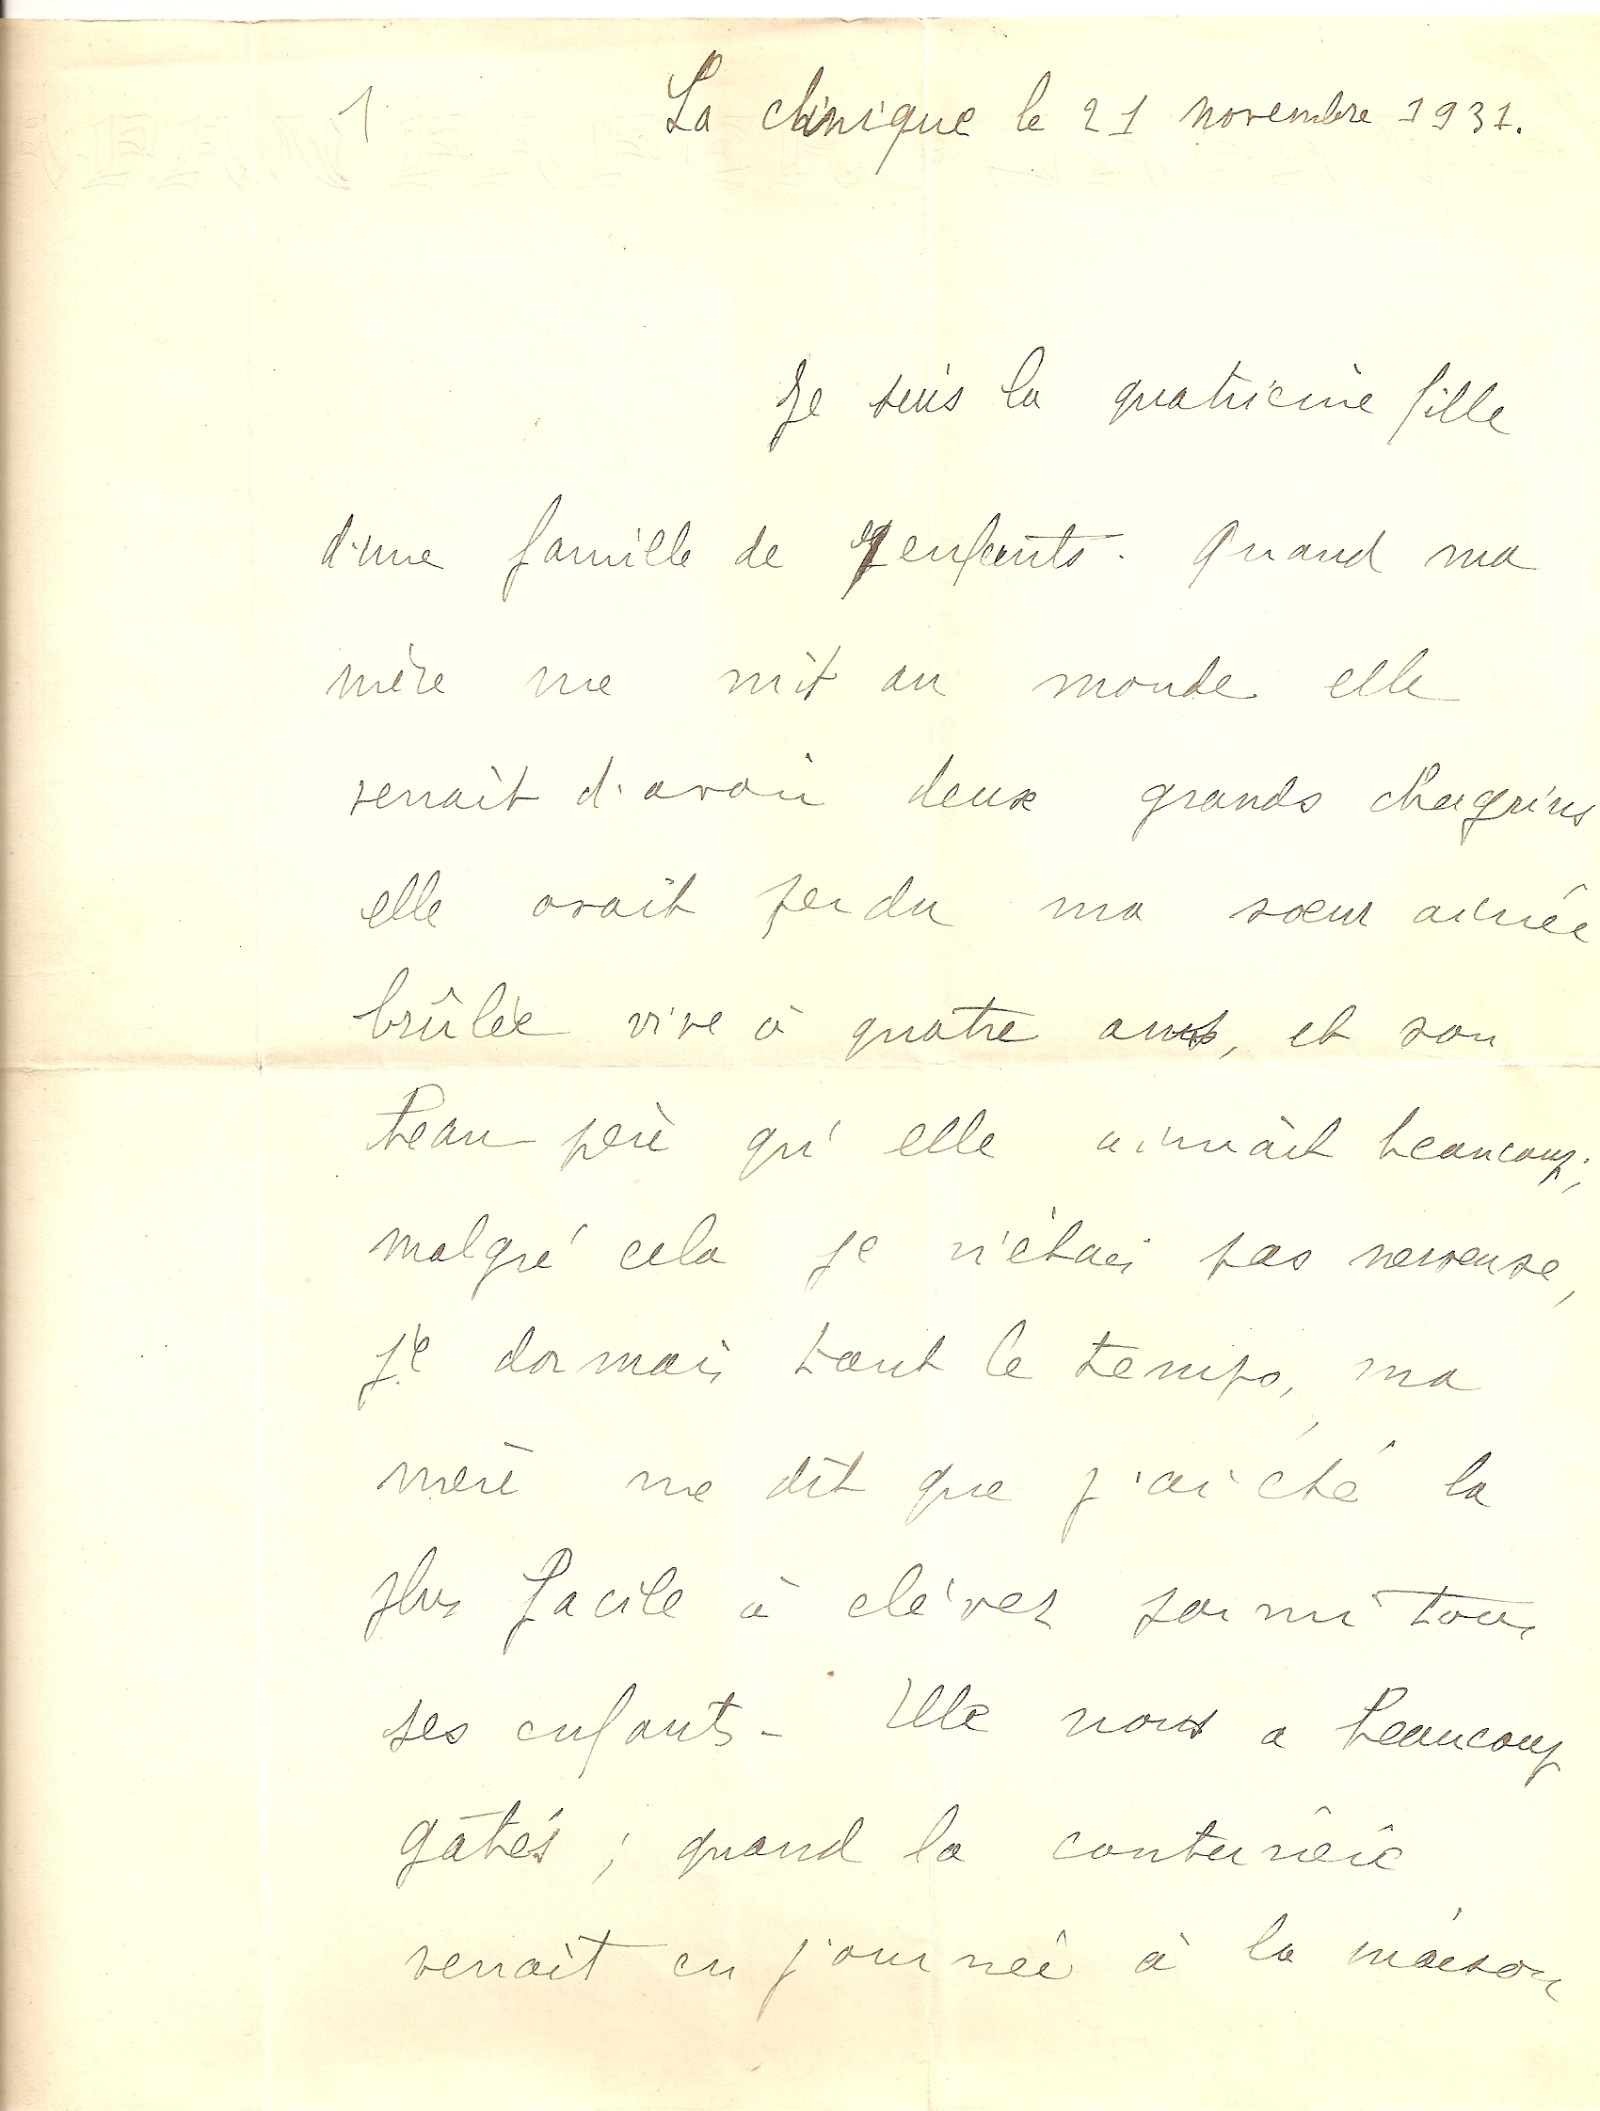 1 La clinique le 21 novembre 1931.
Je suis la quatrième fille
d'une famille de enfants. Quand ma
mère me mit au monde elle
venait d'avoir deux grands chagrins
elle avait perdu ma sœur ainée
brûlée vive à quatre ans, et son
beau père qu'elle aimait beaucoup;
malgré cela je n'étais pas nerveuse,
je dormais tout le temps, ma
mère me dit que j'ai été la
plus facile à élever parmi tous
ses enfants - Elle nous a beaucoup
gâtés ; quand la couturière
venait en journée à la maison